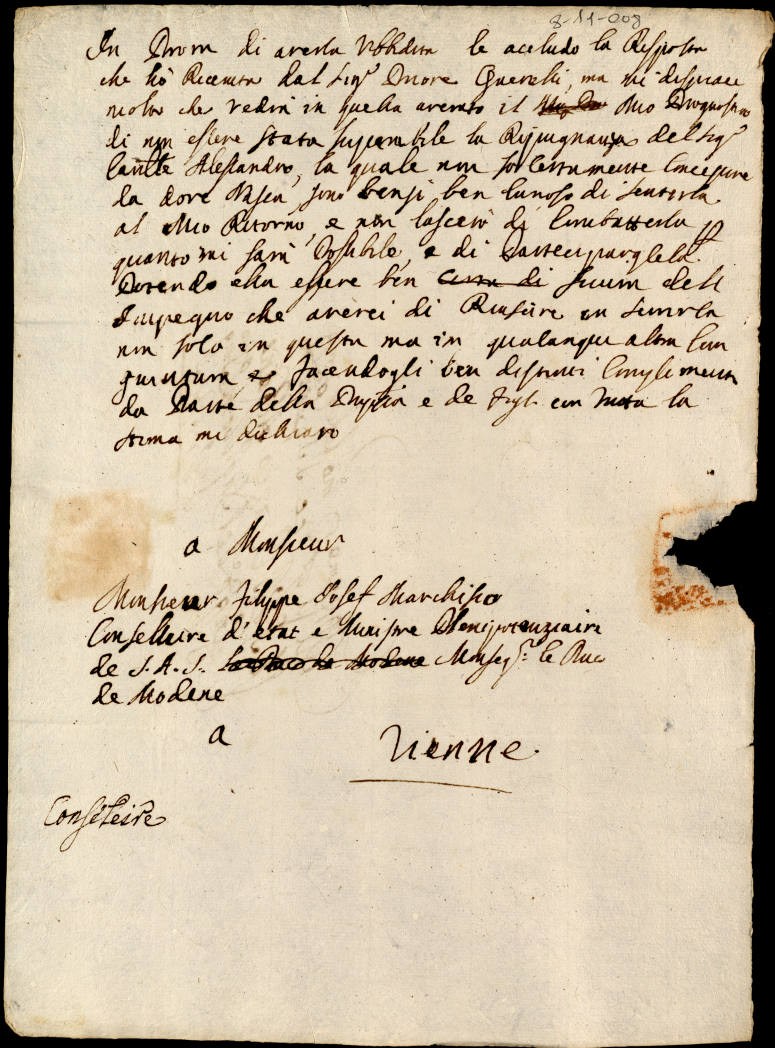 8-11-008
In Prova di averla Ubbidita le accludo la Risposta
che hò Ricevuta dal Sig.r Dottore Guerelli, ma mi dispiace
molto che vedrà in quella averato il mio Prognostico
di non essere stata superabile la Ripugnanza del Sig.r
Alessandro, la quale non so certamente concepire
da dove nasca, sono bensì ben curioso di sentirla
al Mio Ritorno, e non lascerò di combatterla p
quanto mi sarà Possibile, e di Parteciparglela.
Dovendo ella essere ben certa di sicura dell
Impegno che averei di Riuscire in servirla
non solo in questa ma in qualunque altra con
giuntura, e facendogli ben distinti Complimenti
da Parte della e de figli con tutta la
stima mi dichiaro
a Monsieur
Monsieur Filippe Josef Marchisio
Conselleire d'etat e Ministre Plenipotenziaire
de S. A. S. le Duc de Modene Monseg.r le Duc
de Modene
a Vienne.
Conseleire